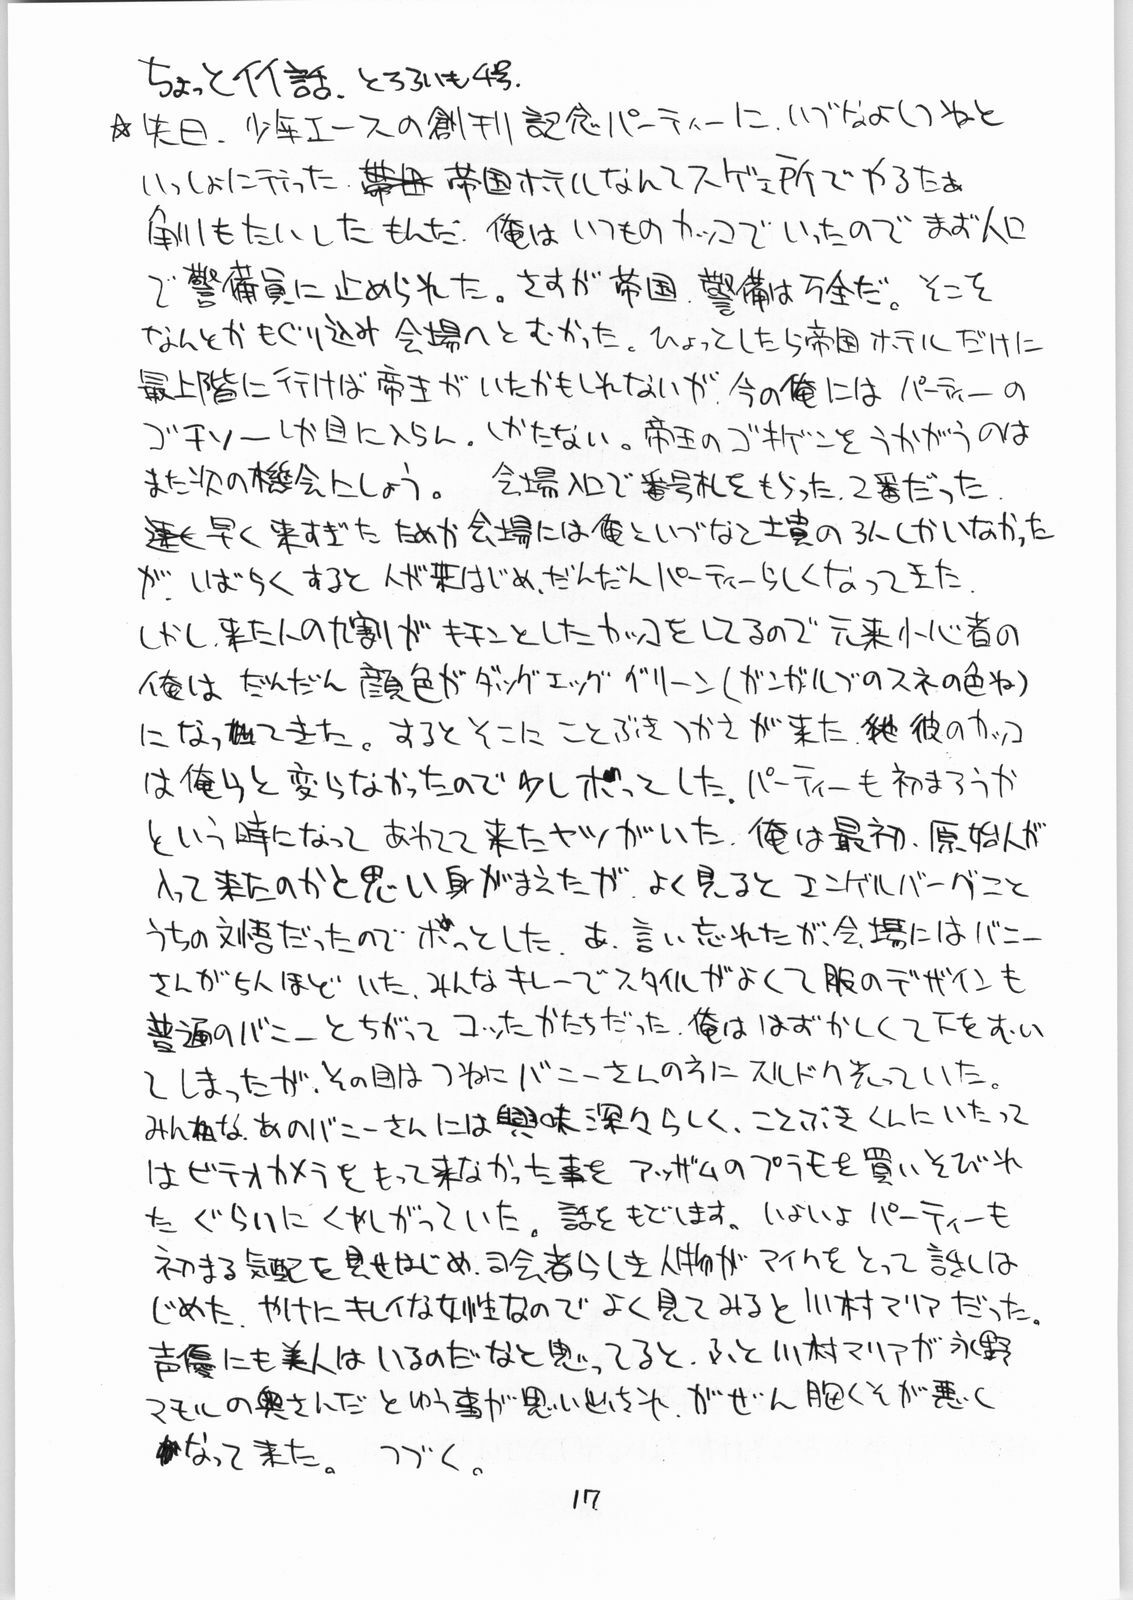 ちょっとイイ話、とろろいも4号.
☆先日、少年エースの創刊記念パーティーに、いづなよしつねと
いっしょに行った. 帝国ホテルなんてスゲェ所でやるたぁ
角川もたいしたもんだ. 俺はいつものカッコでいったのでまず入口
で警備員に止められた。さすが帝国、警備は万全だ。そこを
なんとかもぐり込み会場へとむかった。ひょっとしたら帝国ホテルだけに
最上階に行けば帝王がいたかもしれないが、今の俺にはパーティーの
ゴチソーしか目に入らん。しかたない。帝王のゴキゲンをうかがうのは
また次の機会にしよう。 会場入口で番号札をもらった、2番だった.
早く来すぎたためか会場には俺といづなと士貴の3人しかいなかった
が、しばらくすると人が来はじめ、だんだんパーティーらしくなってきた.
しかし、来た人の九割がキチンとしたカッコをしてるので元来小心者の
俺はだんだん顔色がダックエッググリーン(ガンガルブのスネの色ね)
になってきた。するとそこにことぶきつかさが来た. 彼のカッコ
は俺らと変らなかったので少しホッとした. パーティーも初まろうか
という時になってあわてて来たヤツがいた. 俺は最初、原始人が
入って来たのかと思い身がまえたが、よく見るとエンゲルバーグこと
うちの刘悟だったのでホッとした. あ、言い忘れたが、会場にはバニー
さんが5人ほどいた、みんなキレーでスタイルがよくて服のデザインも
普通のバニーとちがってコッたかたちだった. 俺ははずかしくて下をむい
てしまったが、その目はつねにバニーさんの方にスルドク光っていた。
みんな、あのバニーさんには興味深々らしく、ことぶきくんにいたって
はビデオカメラをもって来なかった事をアッザムのプラモを買いそびれ
たぐらいにくやしがっていた。話をもどします。いよいよパーティーも
初まる気配を見せはじめ、司会者らしき人物がマイクをとって話しは
じめた. やけにキレイな女性なのでよく見てみると川村マリアだった。
声優にも美人はいるのだなと思ってると、ふと川村マリアが永野
マモルの奥さんだとゆう事が思い出され、がぜん胸くそが悪く
なって来た。 つづく。
17